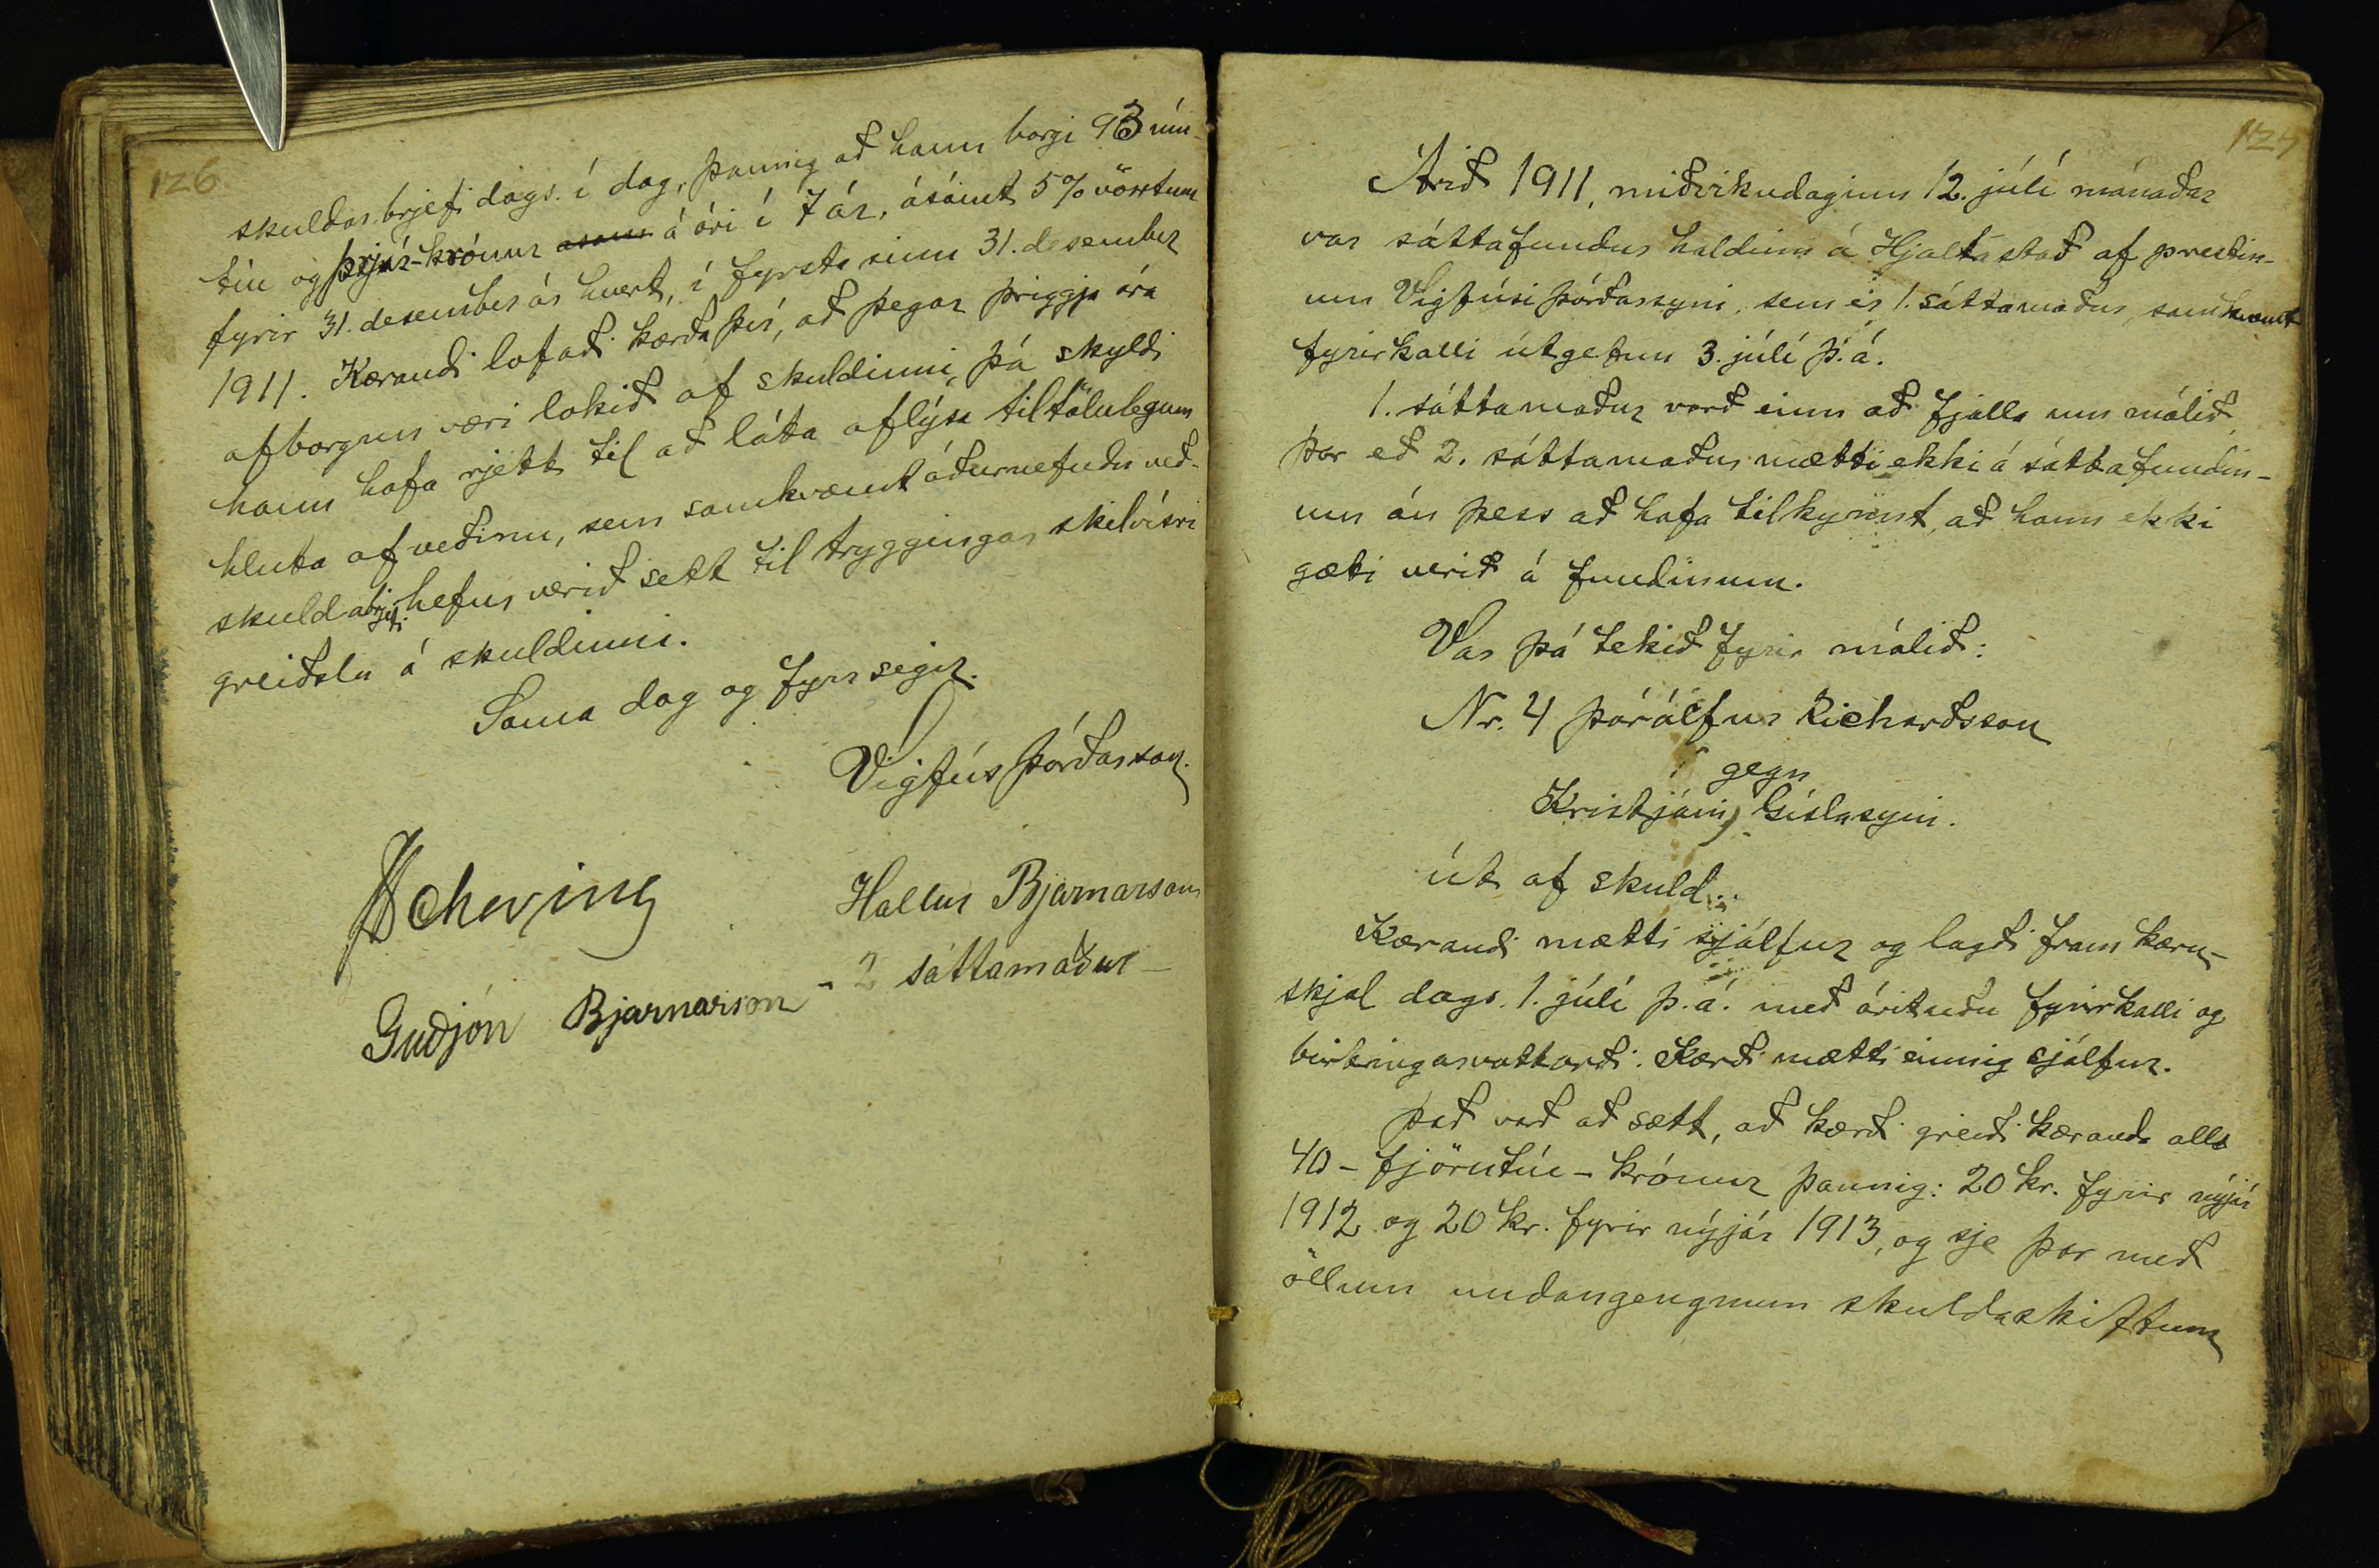 126
skuldarbrjefi dags. í dag, þannig að hann borgi 93 níu-
tíu og þrjár-krónur asam á ári í 7 ár, ásamt 5% vöxtum
fyrir 31. desember ár hvert, í fyrsta sinn 31. desember
1911. Kærandi lofaði kærða því, að þegar þriggja ára
afborgun væri lokið af skuldinni, þá skyldi
hann hafa rjett til að láta aflýsa tiltölulegum
hluta af veðinu, sem samkvæmt áðurnefndu veð-
skuldabrjefi hefur verið sett til tryggingar skilvísri
greiðslu á skuldinni.
Sama dag og fyrr segir.
Vigfús Þórðarson.
Scheving
Hallur Bjarnarson
- 2 sáttamaður -
Guðjón Bjarnarson
127
Árið 1911, miðvikudaginn 12. júlí mánaðar
var sáttafundur haldinn á Hjaltastað af prestin-
um Vigfúsi Þórðarsyni, sem er 1. sáttamaður, samkvæmt
fyrirkalli útgefnu 3. júlí þ.á.
1. sáttamaður varð einn að fjalla um málið,
þar eð 2. sáttamaður mætti ekki á sáttafundin-
um án þess að hafa tilkynnt, að hann ekki
gæti verið á fundinum.
Var þá tekið fyrir málið:
Nr. 4 Þórálfur Richarðsson
gegn
Kristjáni Gíslasyni.
út af skuld.
Kærandi mætti sjálfur og lagði fram kæru-
skjal dags. 1. júlí þ.á. með árituðu fyrirkalli og
birtingarvottorði. Kærði mætti einnig sjálfur.
Það varð að sætt, að kærði greiði kæranda alls
40 - fjörutíu - krónur þannig: 20 kr. fyrir nýjár
1912 og 20 kr. fyrir nýjár 1913, og sje þar með
öllum undangengnum skuldaskiftum